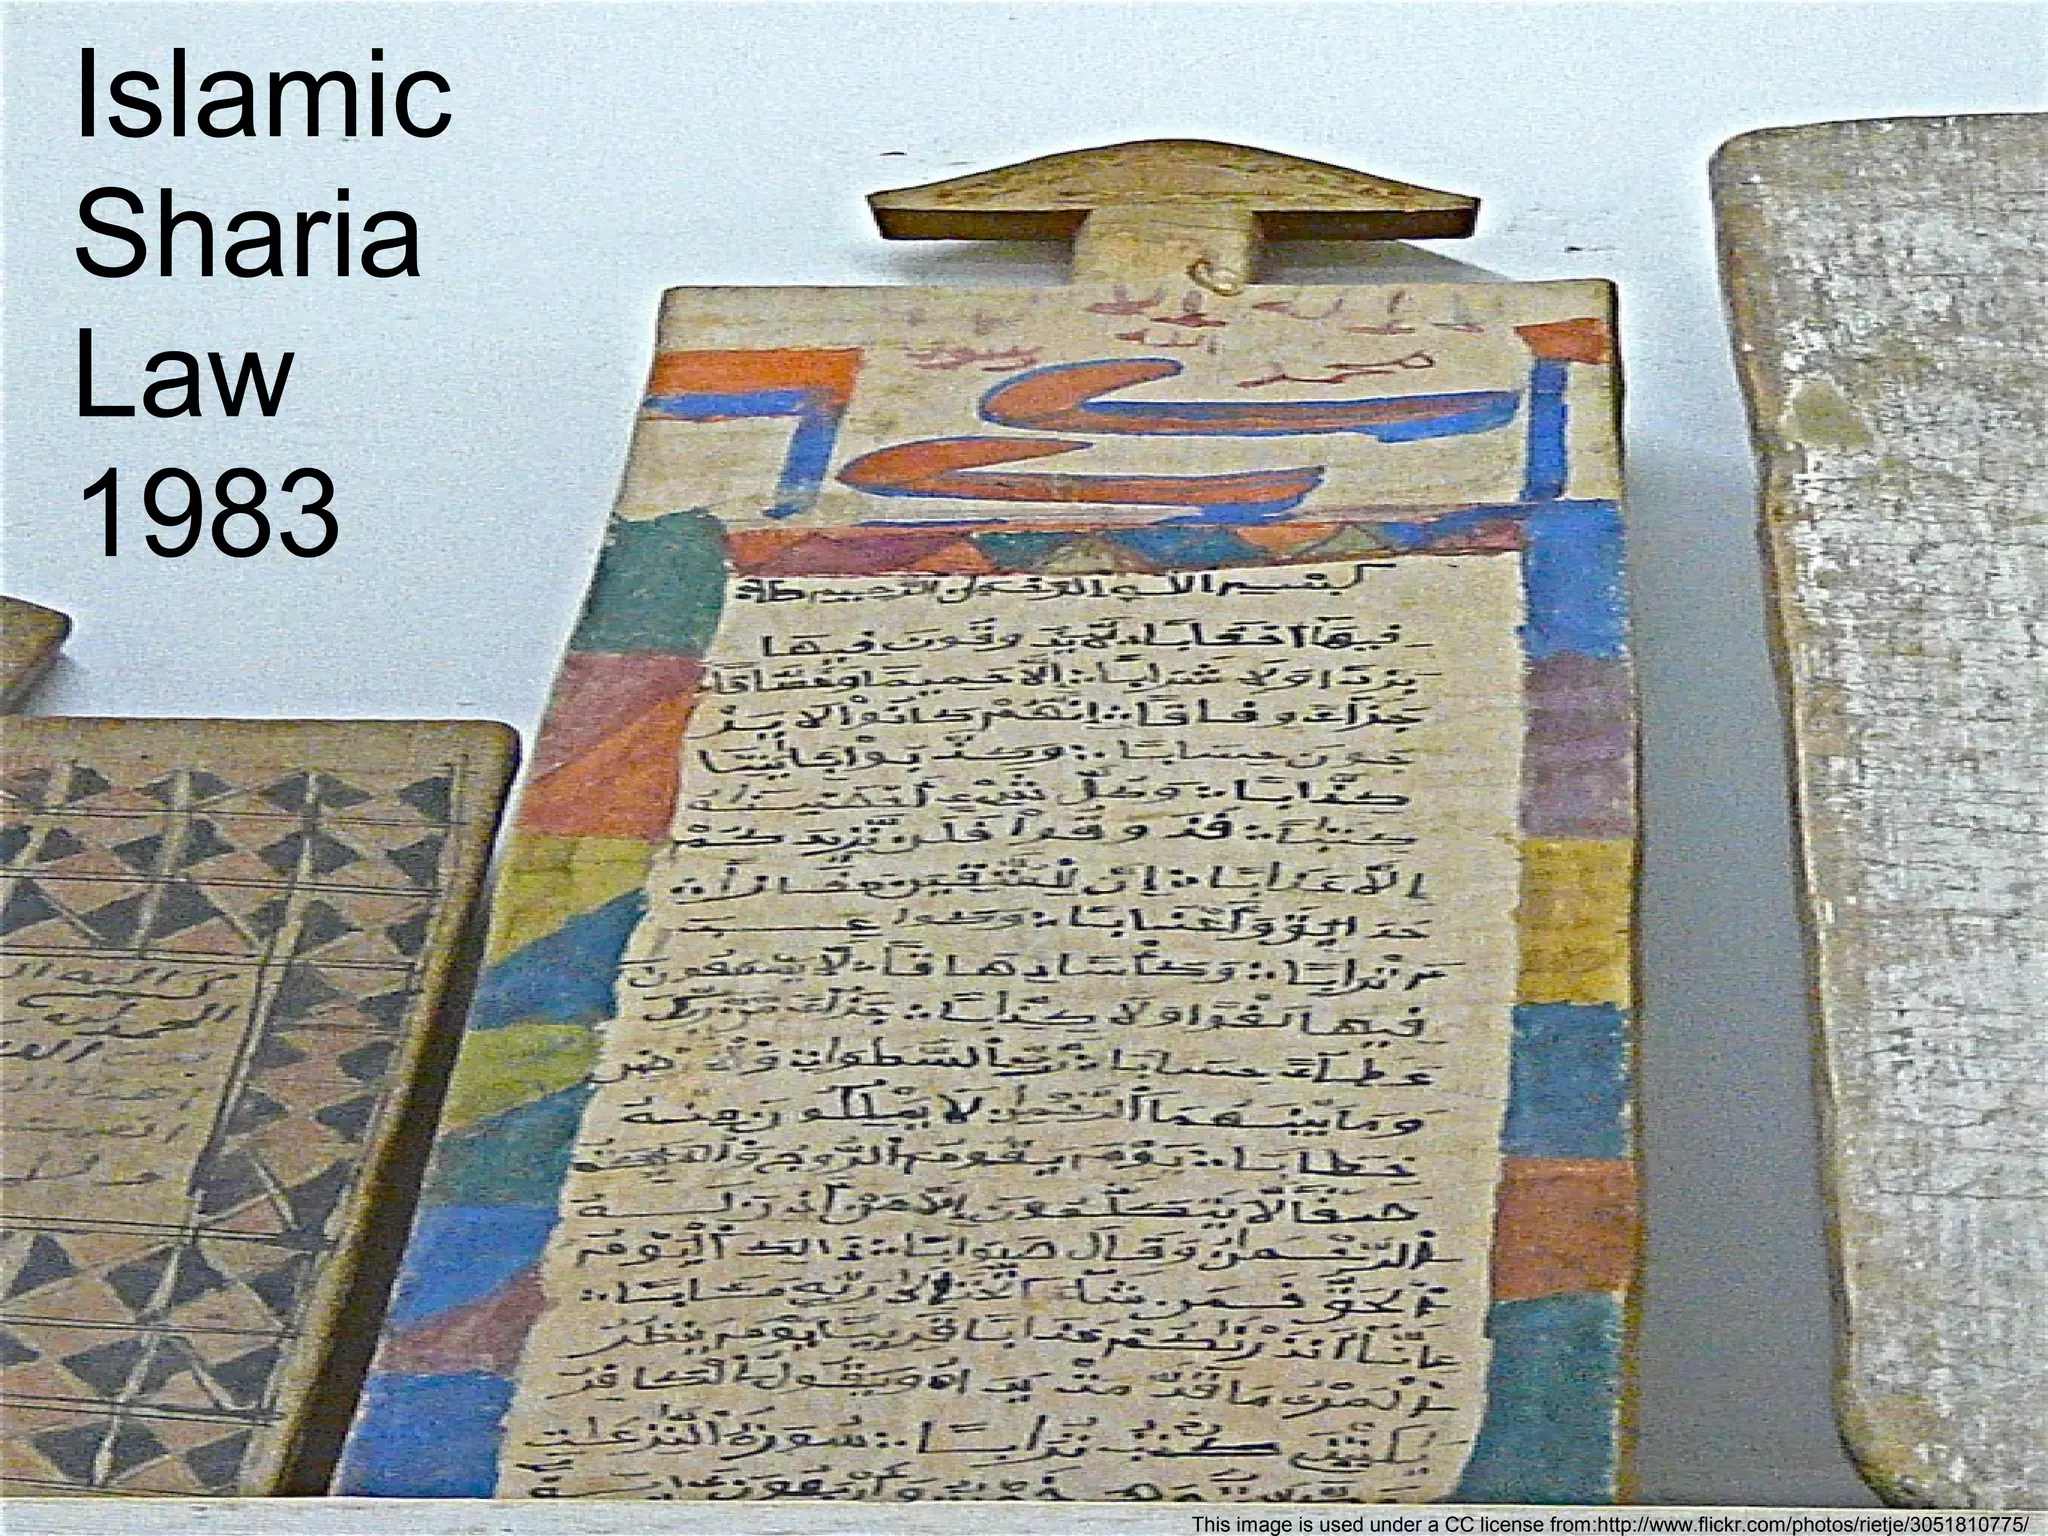 Islamic
Sharia
Law
1983
لا اله الا
الله
محمد رسول
بسم الله الرحمن الرحيم
فيها احقابا لا يذوقون فيها
بردا ولا شرابا الا حميما وغساقا
جزاء وفاقا انهم كانوا لا ير
جون حسابا وكذبوا بايتنا
كذابا وكل شيء احصينه
كتبا فذوقوا فلن نزيدكم
الا عذابا ان للمتقين مفازا
حدائق واعنابا وكواعب
اترابا وكأسا دهاقا لا يسمعون
فيها لغوا ولا كذابا جزاء من ربك
عطاء حسابا رب السموات والارض
وما بينهما الرحمن لا يملكون منه
خطابا يوم يقوم الروح والملئكة
صفا لا يتكلمون الا من اذن له
الرحمن وقال صوابا ذالك اليوم
الحق فمن شاء اتخذ الى ربه مئابا
انا انذرنكم عذابا قريبا يوم ينظر
المرء ما قدمت يداه ويقول الكافر
يليتني كنت ترابا سورة النزعت
This image is used under a CC license from:http://www.flickr.com/photos/rietje/3051810775/